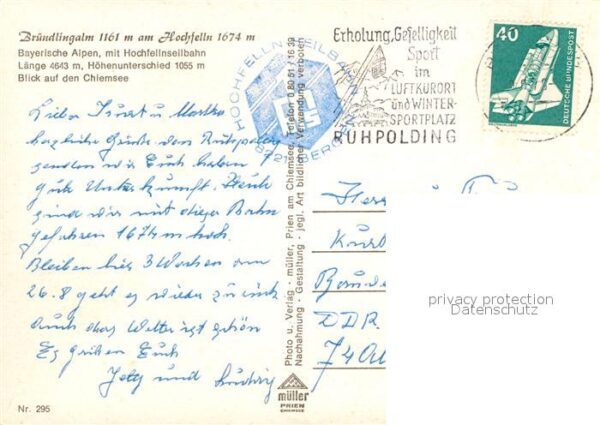 Bründlingalm 1161 m am Hochfelln 1674 m
Bayerische Alpen, mit Hochfellnseilbahn
Länge 4643 m, Höhenunterschied 1055 m
Blick auf den Chiemsee
Liebe Kurt u Martha
herzliche Grüße von Ruhpolding
senden wir Euch haben
gute Unterkunft. Heute
sind wir mit dieser Bahn
gefahren 1674 m hoch.
Bleiben hier 3 Wochen am
26.8 geht es wieder zurück
Auch das Wetter ist schön
Es grüßen Euch
und Ludwig
Nr. 295
HOCHFELLNSEILBAHN
8221 BERGEN
Photo u. Verlag - müller, Prien am Chiemsee, Telefon 0 80 51 / 16 39
Nachahmung - Gestaltung - jegl. Art bildlicher Verwendung verboten
müller
PRIEN
CHIEMSEE
Erholung, Geselligkeit
Sport
im
LUFTKURORT
und WINTER-
SPORTPLATZ
RUHPOLDING
40
DEUTSCHE BUNDESPOST
Kurt
DDR
privacy protection
Datenschutz